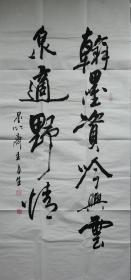 翰墨資吟興雲
泉適野情